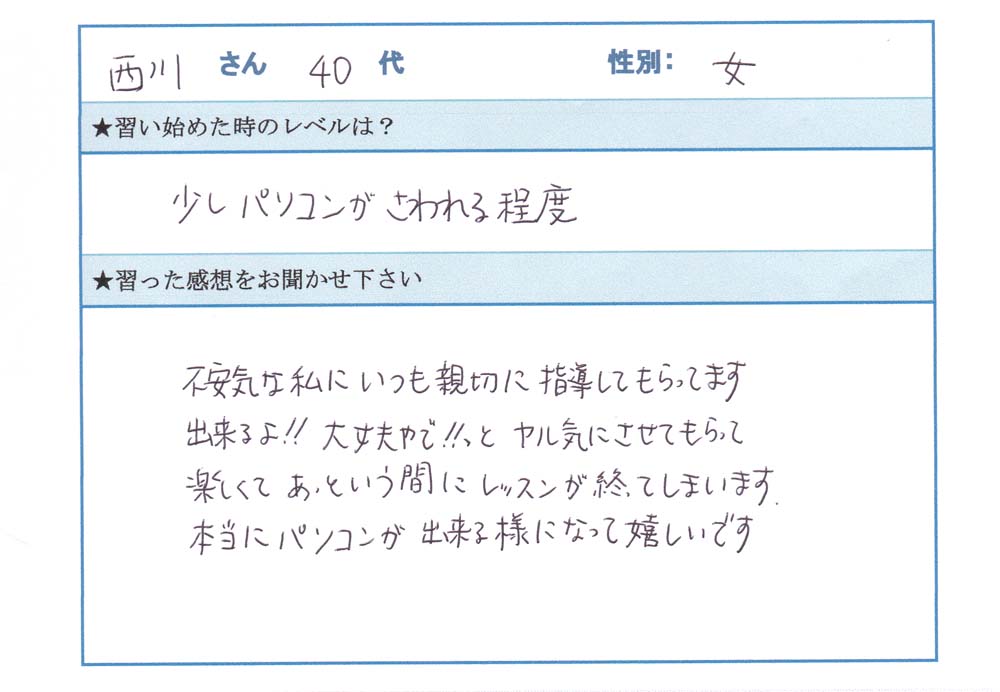 西川 さん 40 代 性別： 女
★習い始めた時のレベルは？
少し パソコンが さわれる 程度
★習った感想をお聞かせ下さい
不安気な私に いつも親切に 指導してもらってます
出来るよ!! 大丈夫やで!!っと ヤル気にさせてもらって
楽しくて あっという間に レッスンが 終ってしまいます.
本当に パソコンが 出来る様になって 嬉しいです